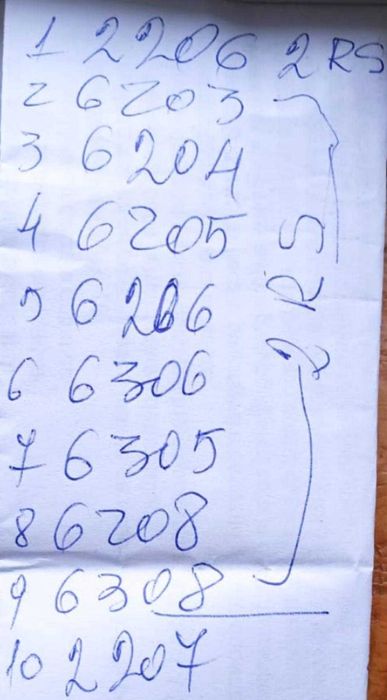 1 2206 2RS
2 6203
3 6204
4 6205
5 6206
6 6306
7 6305
8 6208
9 6308
2RS
10 2207